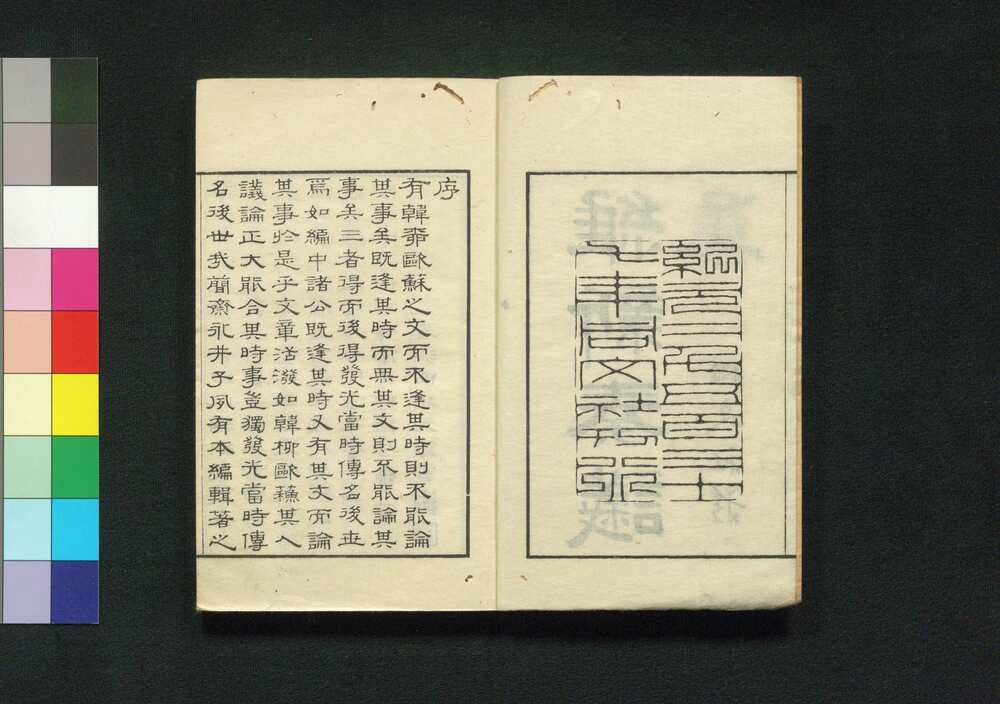 紀元二千五百三十
年同文社刊行
序
有韓柳歐蘇之文而不逢其時則不能論
其事矣既逢其時而無其文則不能論其
事矣三者得而後得發光當時傳名後世
爲如編中諸公既逢其時又有其文而論
其事於是乎文章活潑如韓柳歐蘇其人
議論正大能合其時事豈獨發光當時傳
名後世哉簡齋永井子夙有本編輯著之